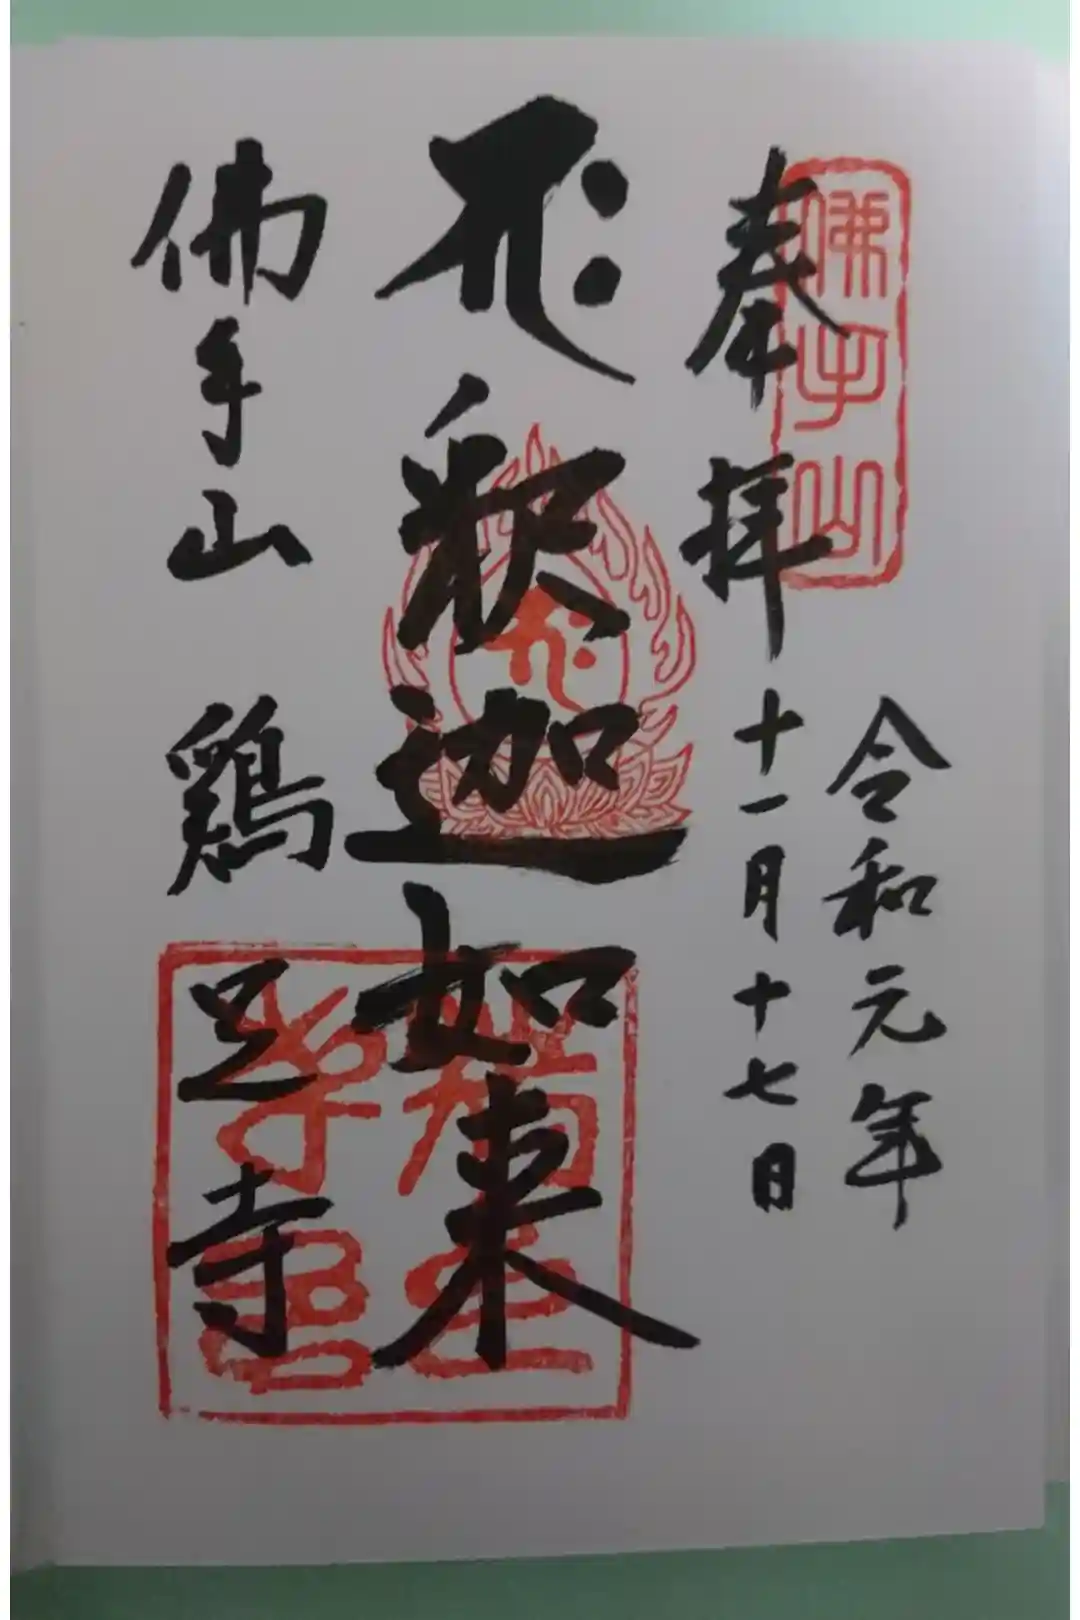 奉拝
令和元年
十一月十七日
釈迦如来
佛手山 鶏足寺
佛手山